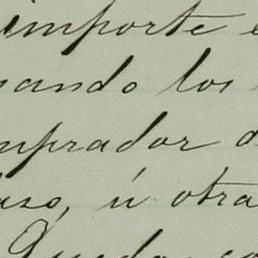 importe
ando los
mprador d
aso, ú otra
Quedan co